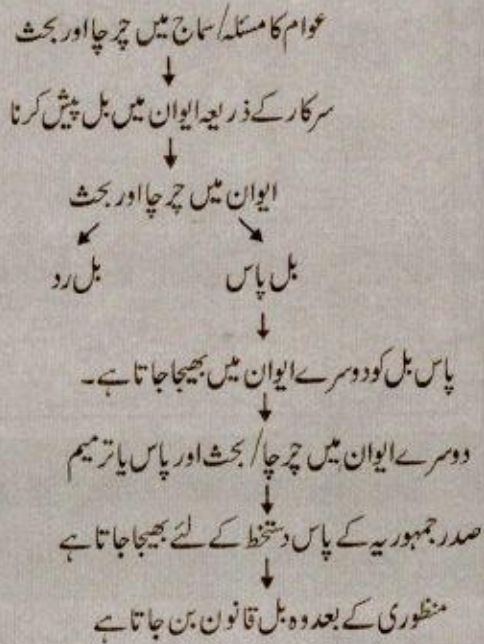 عوام کا مسئلہ/سماج میں چرچا اور بحث
سرکار کے ذریعہ ایوان میں بل پیش کرنا
ایوان میں چرچا اور بحث
بل پاس بل رد
پاس بل کو دوسرے ایوان میں بھیجا جاتا ہے۔
دوسرے ایوان میں چرچا/بحث اور پاس یا ترمیم
صدر جمہوریہ کے پاس دستخط کے لئے بھیجا جاتا ہے
منظوری کے بعد وہ بل قانون بن جاتا ہے